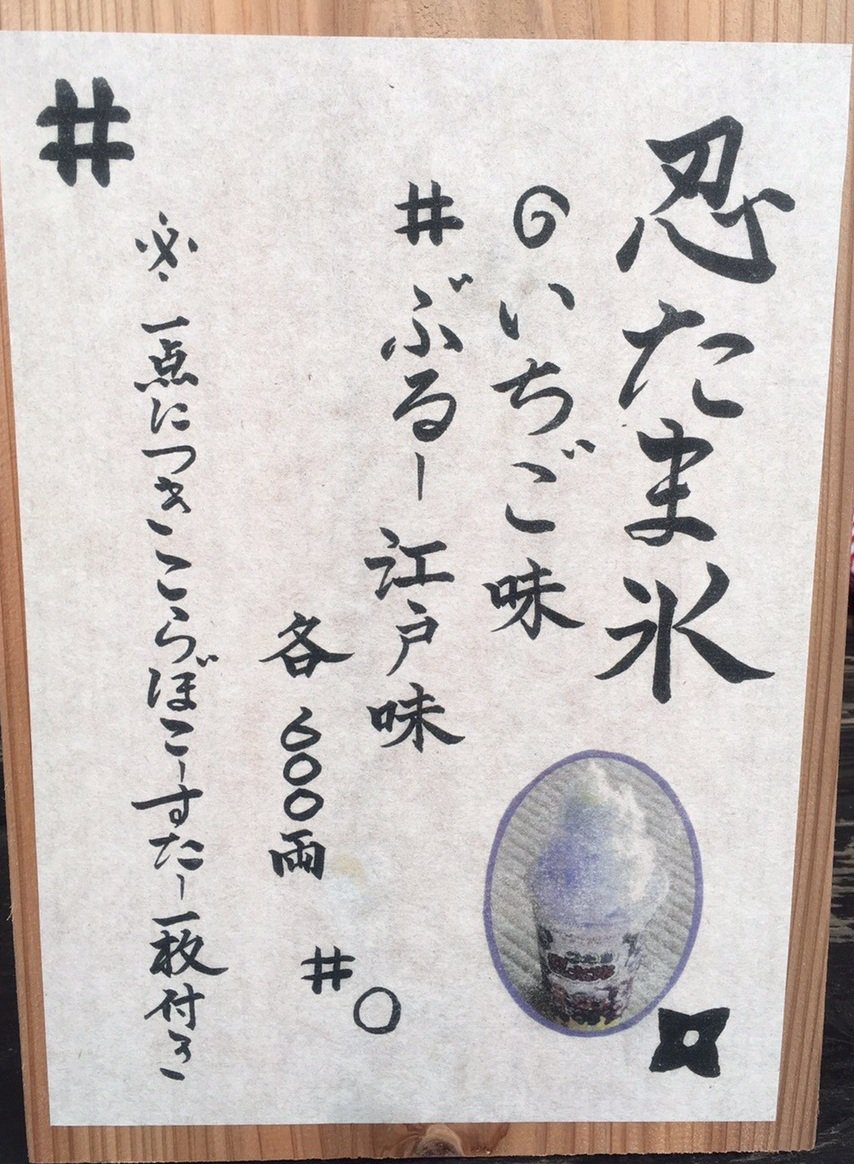 忍たま氷
いちご味
ぶるー江戸味
各 600両
※一点につきこらぼこーすたー一枚付き